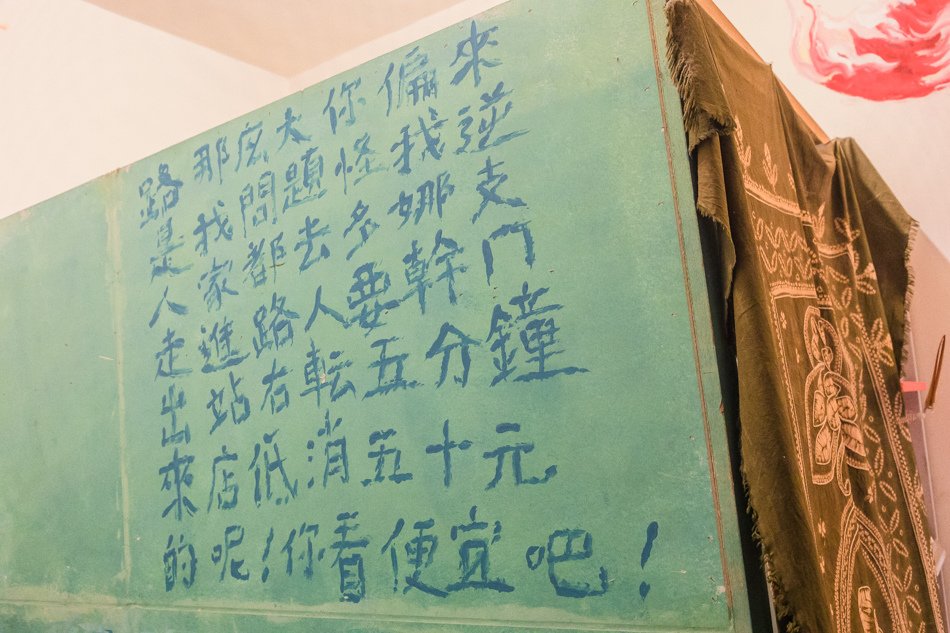 路那庅大你偏來
是找問題怪我逆
人家都去多娜支
走進路人要幹門
出站右転五分鐘
來店低消五十元
的呢!你看便宜吧!